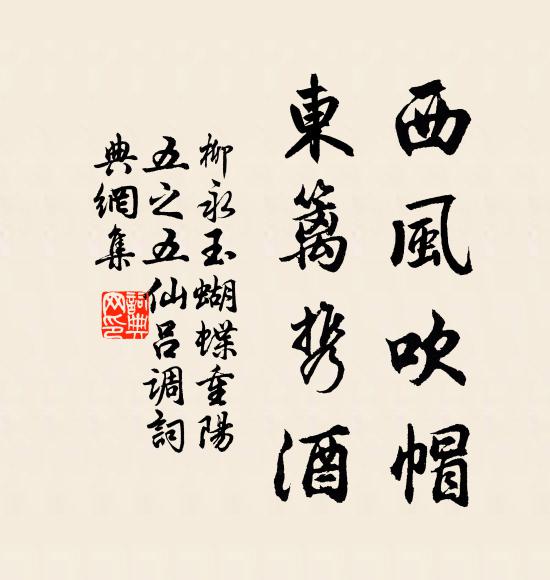 西風吹帽
東籬携酒
柳永玉蝴蝶重陽
五之五仙呂调詞
典網集
詞典網印